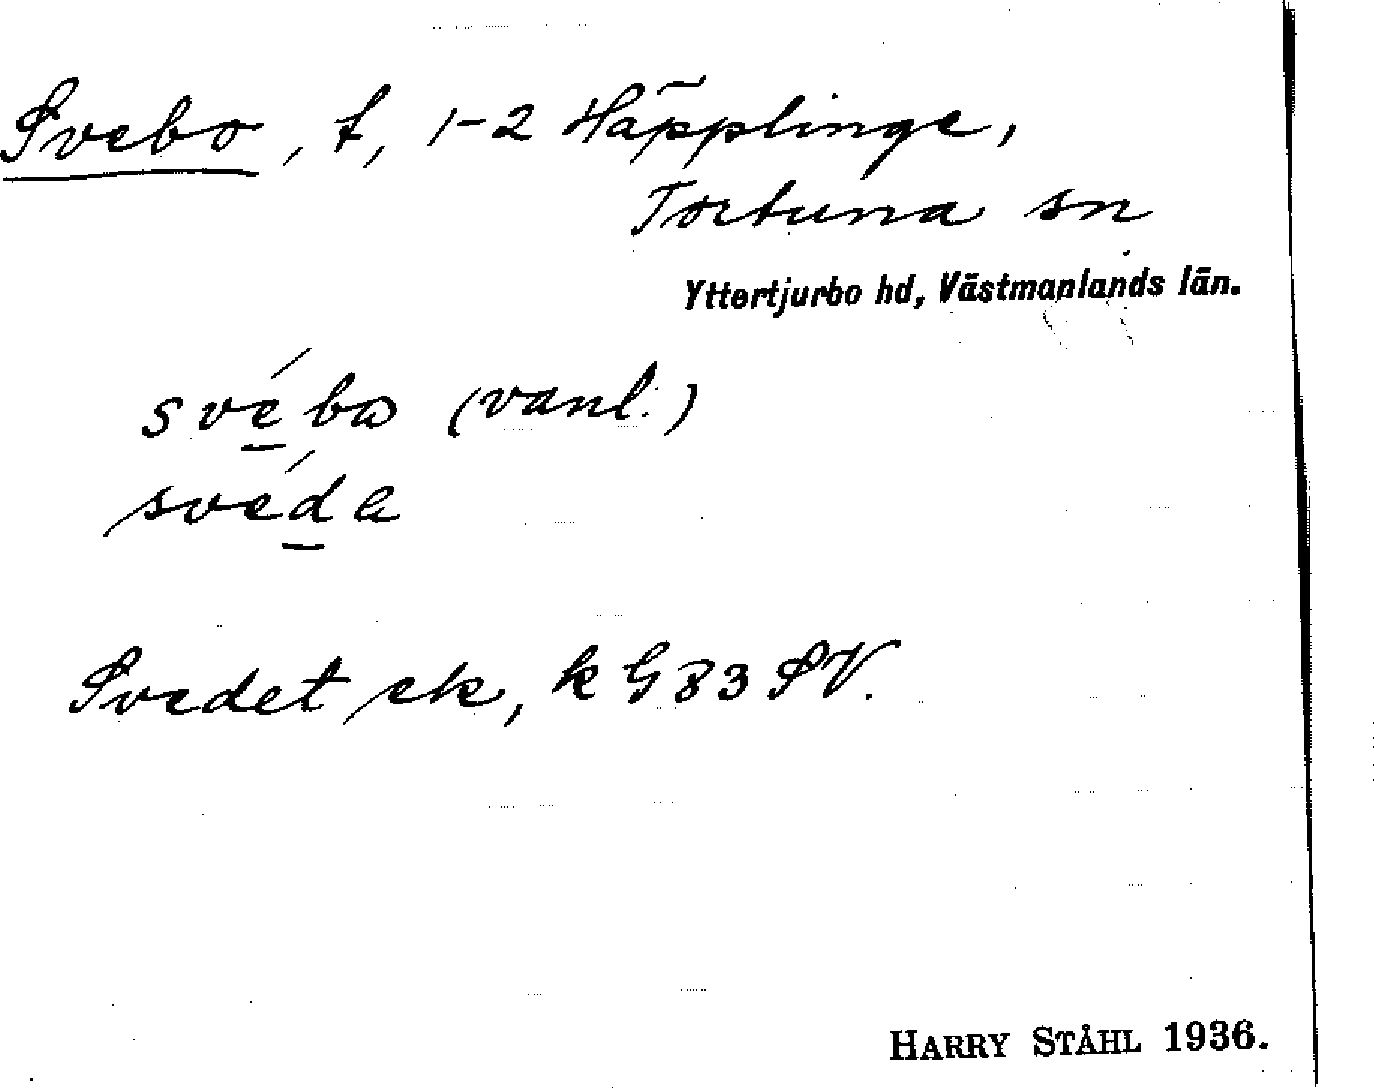 Svebo, t, 1-2 Häpplinge,
Tortuna sn
Yttertjurbo hd, Västmanlands län.
svébω (vanl.)
svéda
Svedet ek, k G 83 SV.
HARRY STÅHL 1936.